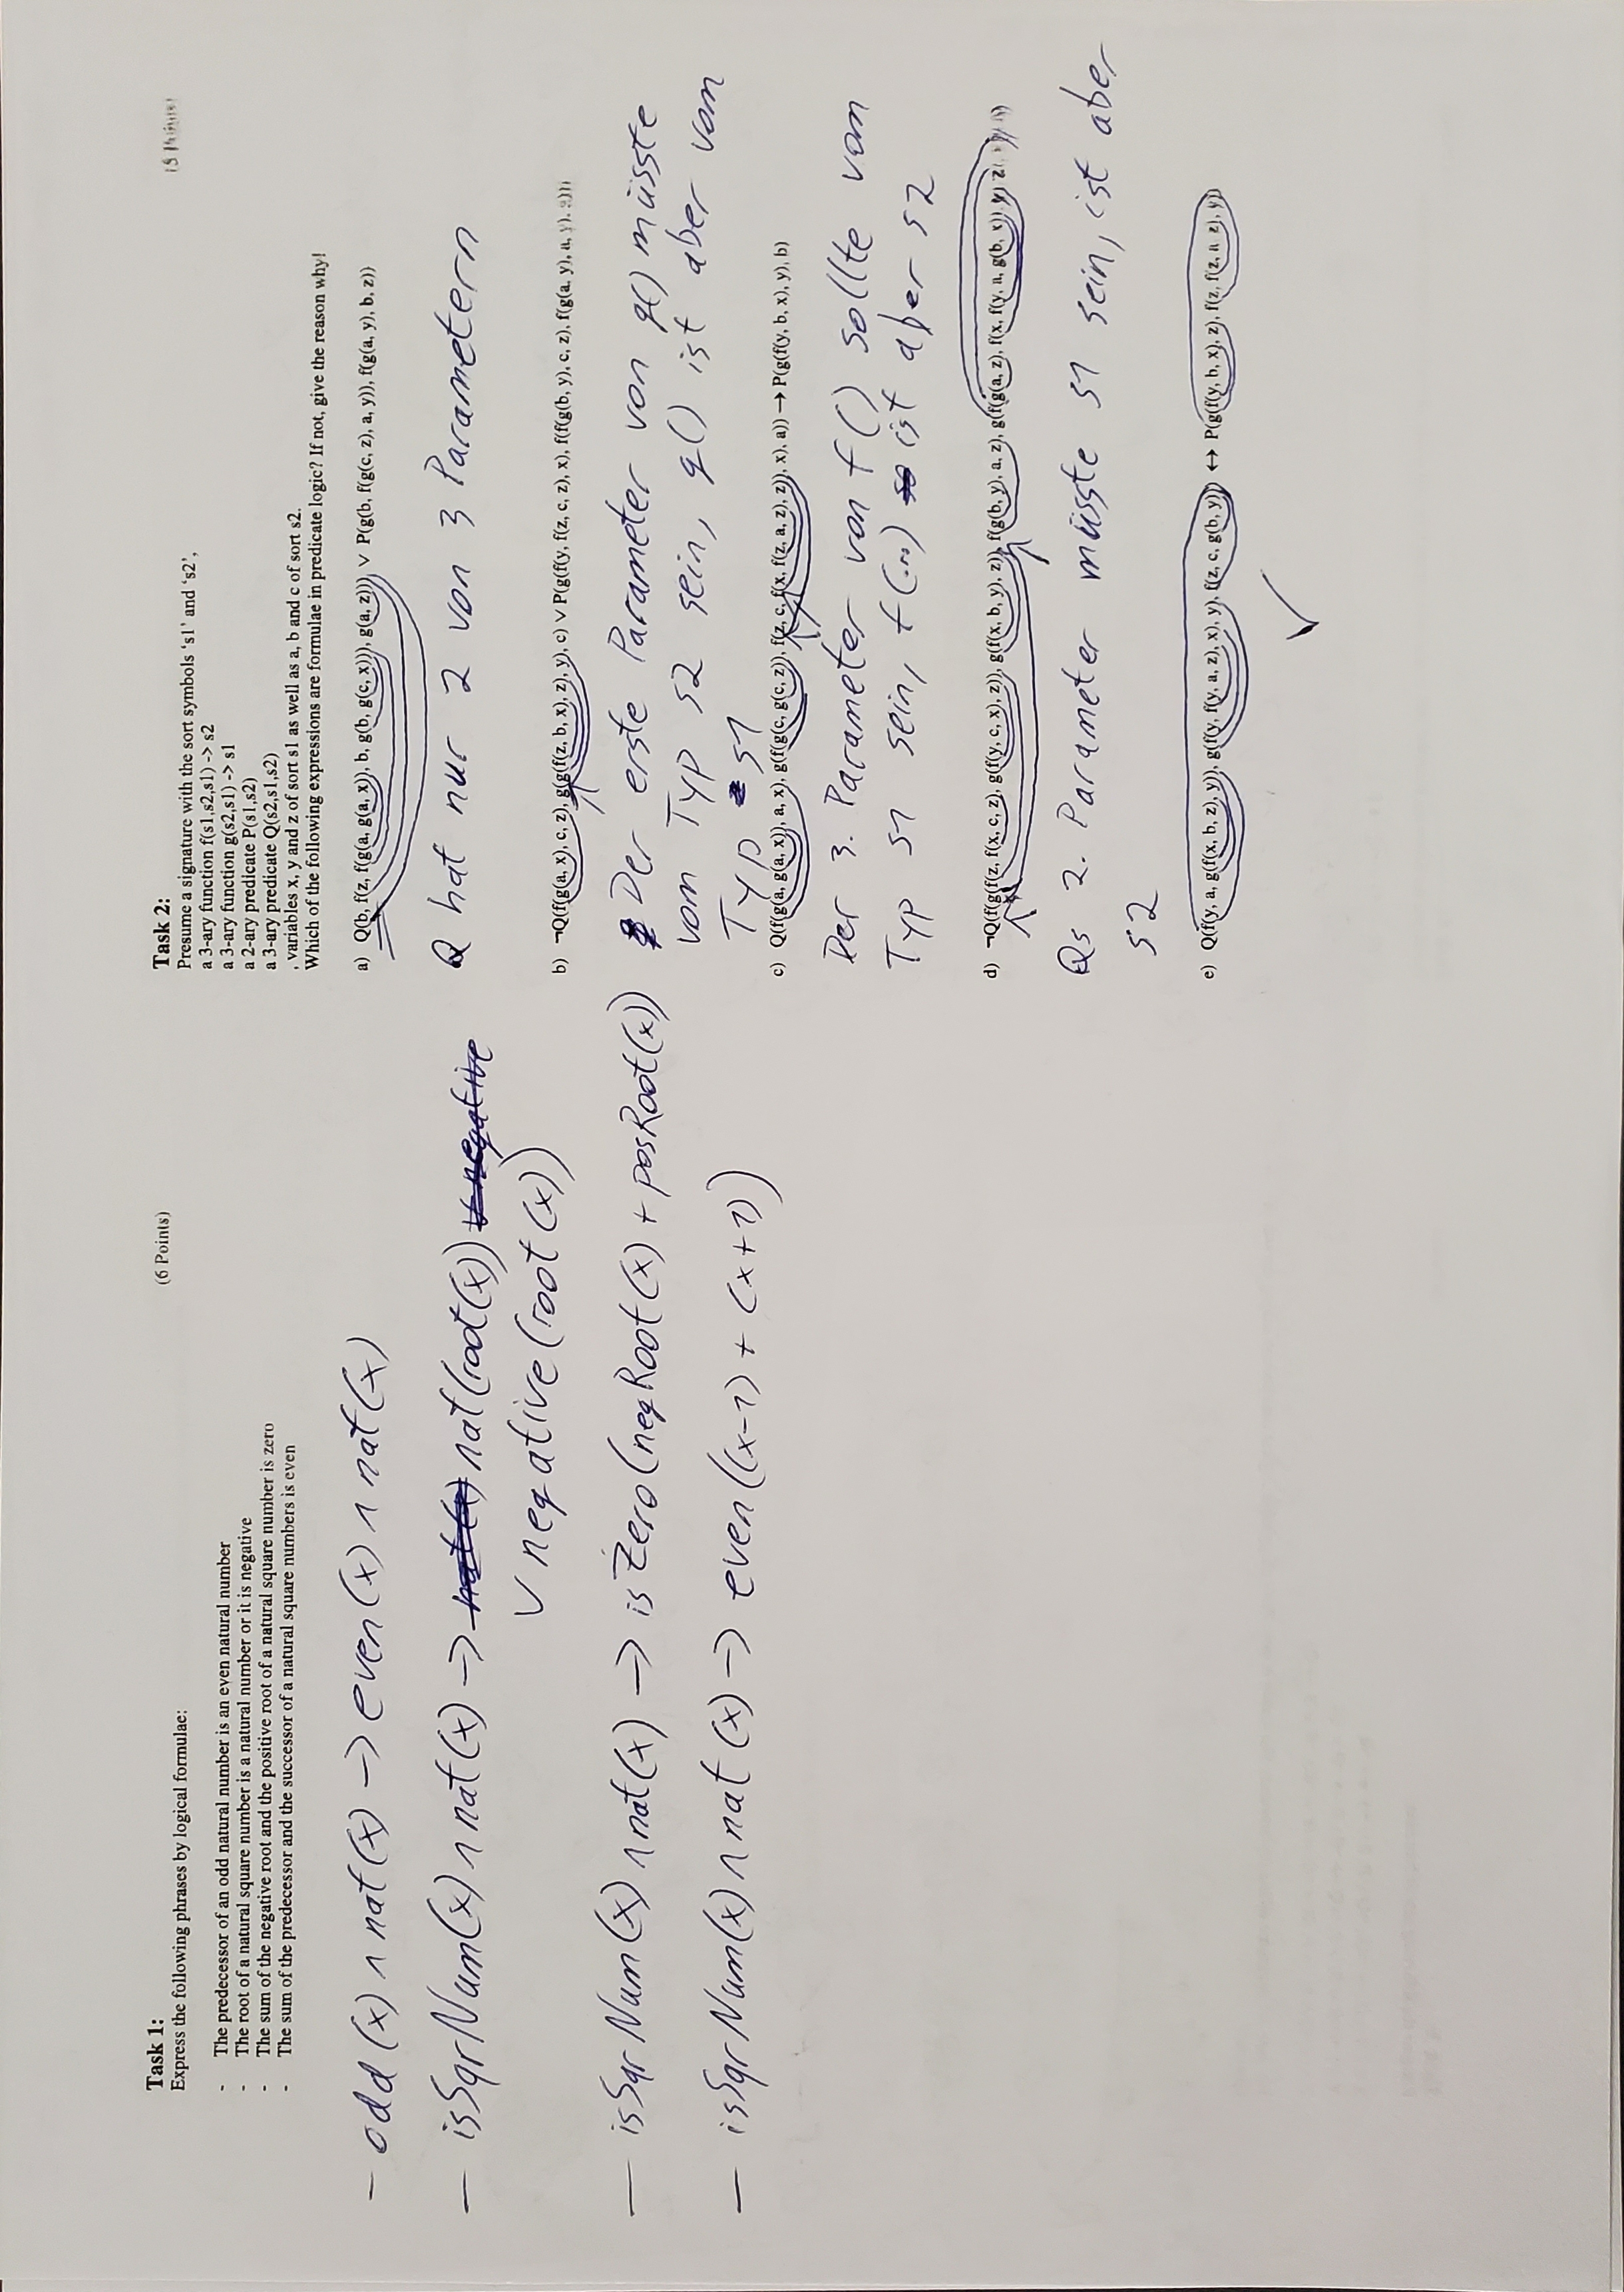 Task 1:
(6 Points)
Express the following phrases by logical formulae:
- The predecessor of an odd natural number is an even natural number
- The root of a natural square number is a natural number or it is negative
- The sum of the negative root and the positive root of a natural square number is zero
- The sum of the predecessor and the successor of a natural square numbers is even
— odd(x) ∧ nat(x) → even(x) ∧ nat(x)
— isSqrNum(x) ∧ nat(x) → nat(root(x))
∨ negative(root(x))
— isSqrNum(x) ∧ nat(x) → isZero(negRoot(x) + posRoot(x))
— isSqrNum(x) ∧ nat(x) → even((x-1) + (x+1))
Task 2:
Presume a signature with the sort symbols ‘s1’ and ‘s2’,
a 3-ary function f(s1,s2,s1) -> s2
a 3-ary function g(s2,s1) -> s1
a 2-ary predicate P(s1,s2)
a 3-ary predicate Q(s2,s1,s2)
, variables x, y and z of sort s1 as well as a, b and c of sort s2.
Which of the following expressions are formulae in predicate logic? If not, give the reason why!
a) Q(b, f(z, f(g(a, g(a, x)), b, g(b, g(c, x))), g(a, z))) ∨ P(g(b, f(g(c, z), a, y)), f(g(a, y), b, z))
Q hat nur 2 von 3 Parametern
b) ¬Q(f(g(a, x), c, z), g(g(f(z, b, x), z), y), c) ∨ P(g(f(y, f(z, c, z), x), f(f(g(b, y), c, z), f(g(a, y), a, y),
Der erste Parameter von g() müsste
vom Typ s2 sein, g() ist aber vom
Typ s1
c) Q(f(g(a, g(a, x)), a, x), g(f(g(c, g(c, z)), f(z, c, f(x, f(z, a, z), z)), x), a)) → P(g(f(y, b, x), y), b)
Der 3. Parameter von f() sollte vom
Typ s1 sein, f(...) ist aber s2
d) ¬Q(f(g(f(z, f(x, c, z), g(f(y, c, x), z)), g(f(x, b, y), z)), f(g(b, y), a, z), g(f(g(a, z), f(x, f(y, a, g(b, x)), y)
Qs 2. Parameter müsste s1 sein, ist aber
s2
e) Q(f(y, a, g(f(x, b, z), y)), g(f(y, f(y, a, z), x), y), f(z, c, g(b, y))) ↔ P(g(f(y, b, x), z), f(z, f(z, a, z), y))
✓